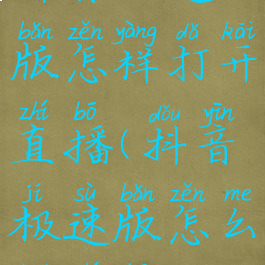 bǎn zěn yàng dǎ kāi
版怎样打开
zhí bō dǒu yīn
直播(抖音
jí sù bǎn zěn me
极速版怎么